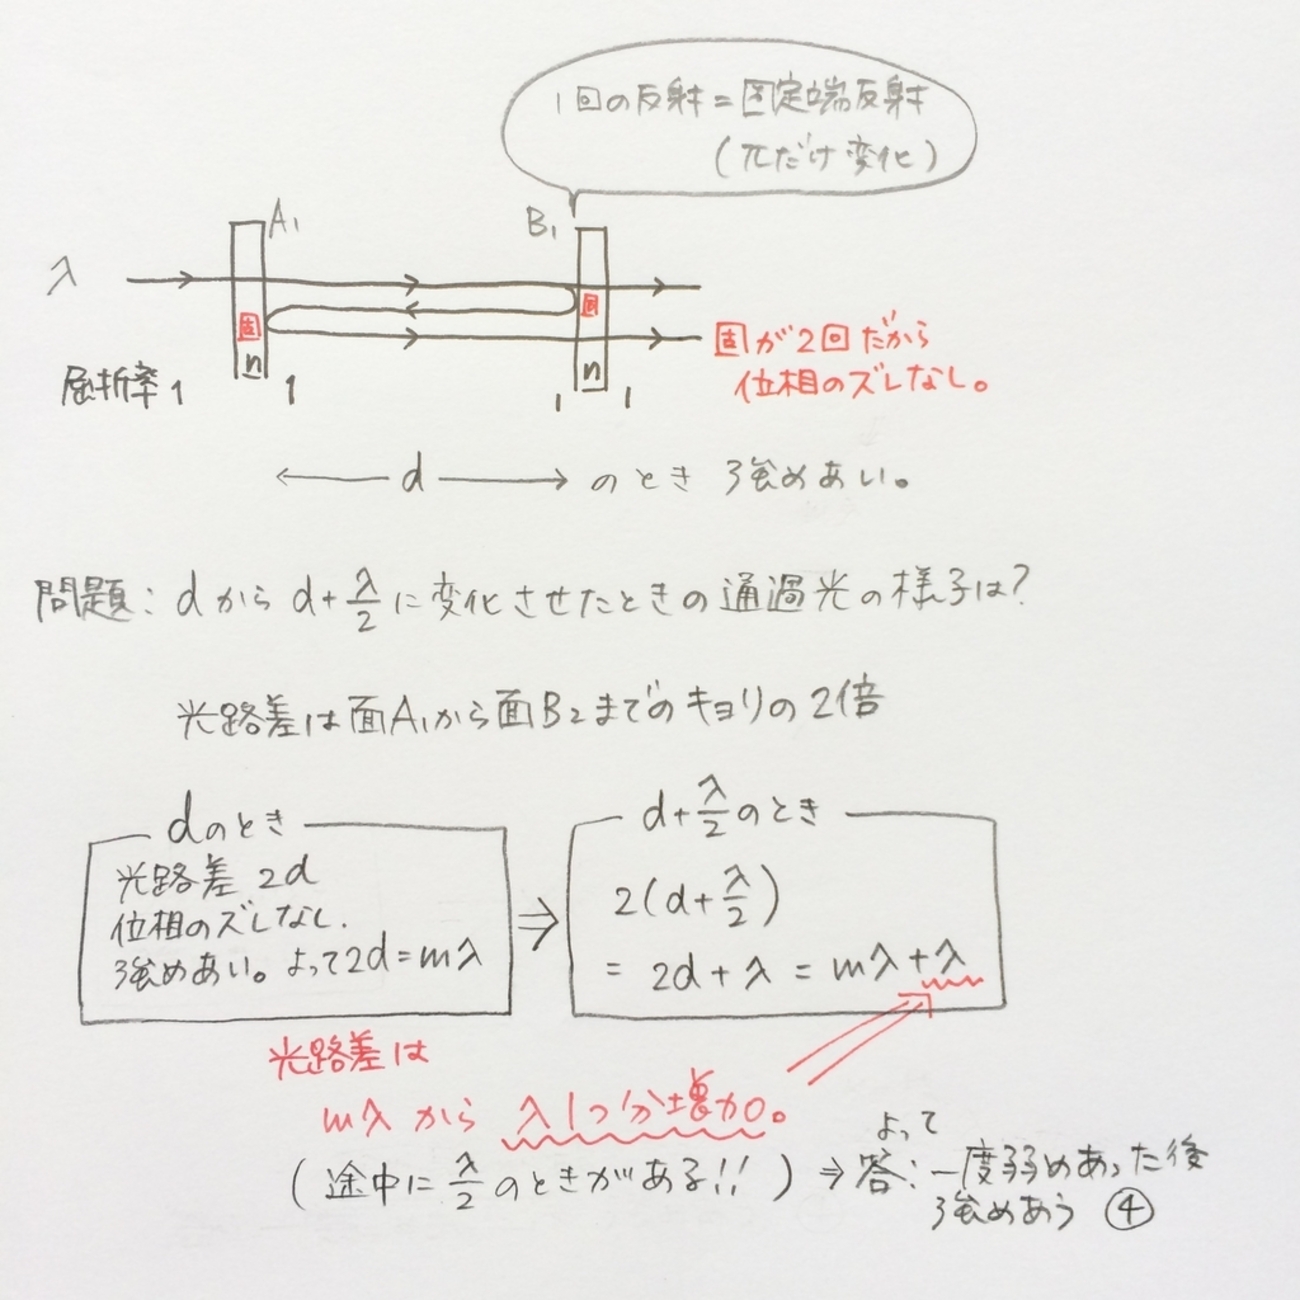 1回の反射=固定端反射
(πだけ変化)
A₁
B₁
λ
固
固
n
n
屈折率1
1
1
1
固が2回だから
位相のズレなし。
d のとき 強めあい。
問題: dから d+λ/2 に変化させたときの通過光の様子は?
光路差は面A₁から面B₂までのキョリの2倍
dのとき
光路差 2d
位相のズレなし.
強めあい。よって2d=mλ
⇒
d+λ/2のとき
2(d+λ/2)
= 2d+λ = mλ+λ
光路差は
mλから λ1つ分増加。
(途中に λ/2 のときがある!!) ⇒
よって
答: 一度弱めあった後
強めあう ④